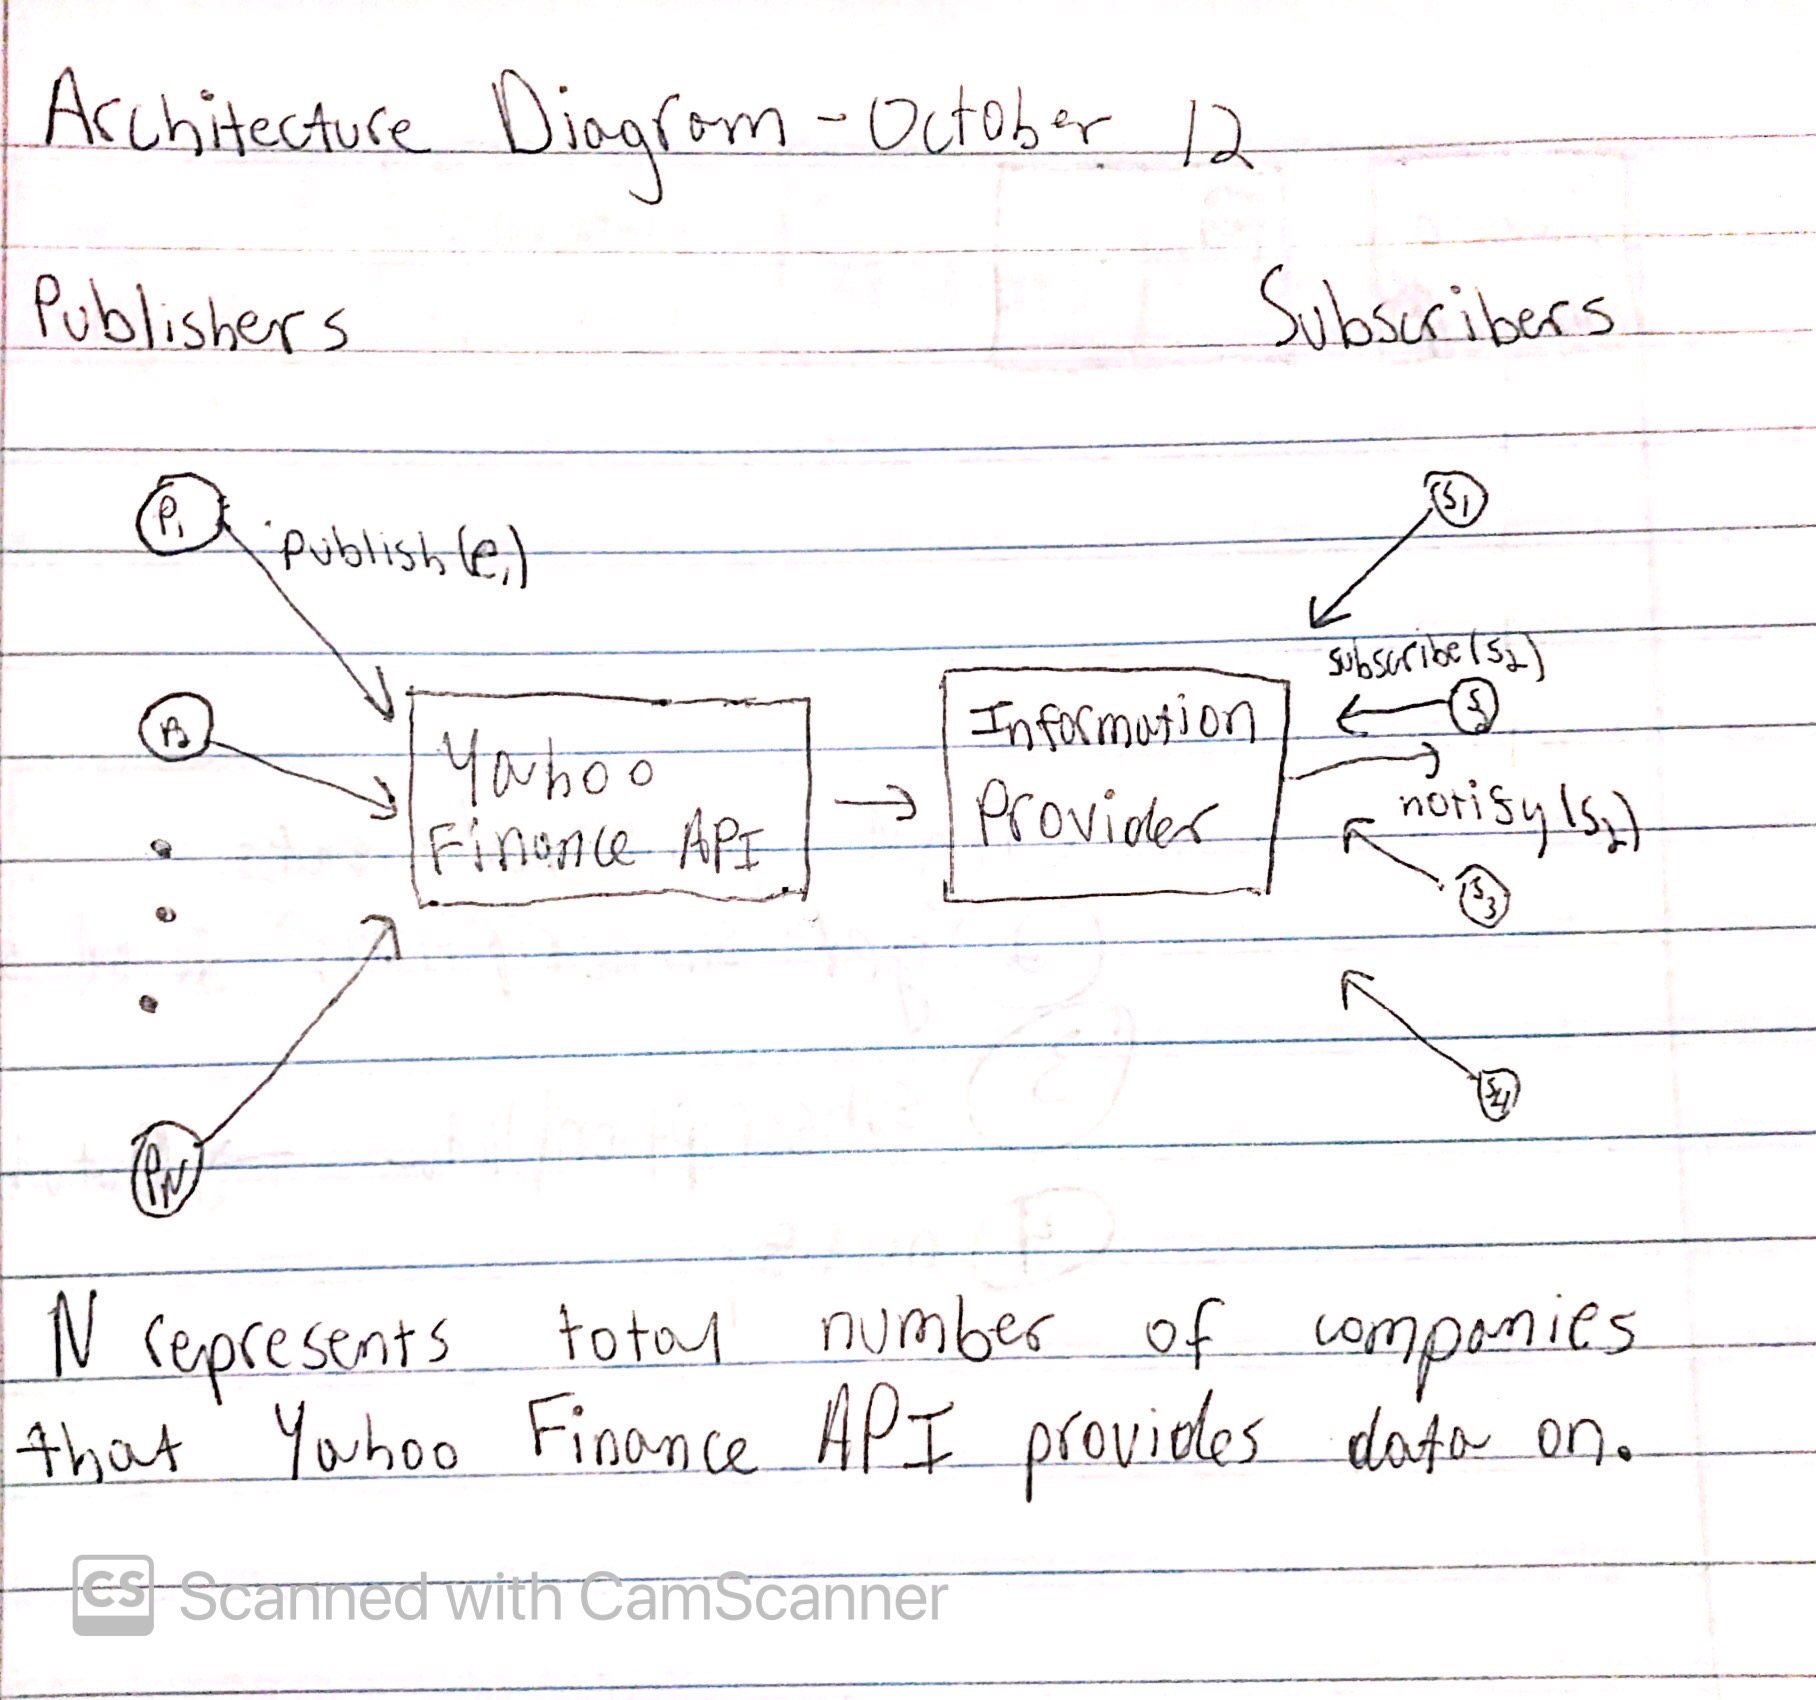 Architecture Diagram - October 12
Publishers
Subscribers
P1
publish(e1)
S1
subscribe(s2)
P2
S2
Yahoo
Finance API
Information
Provider
notify(s2)
S3
S4
PN
N represents total number of companies
that Yahoo Finance API provides data on.
CS Scanned with CamScanner